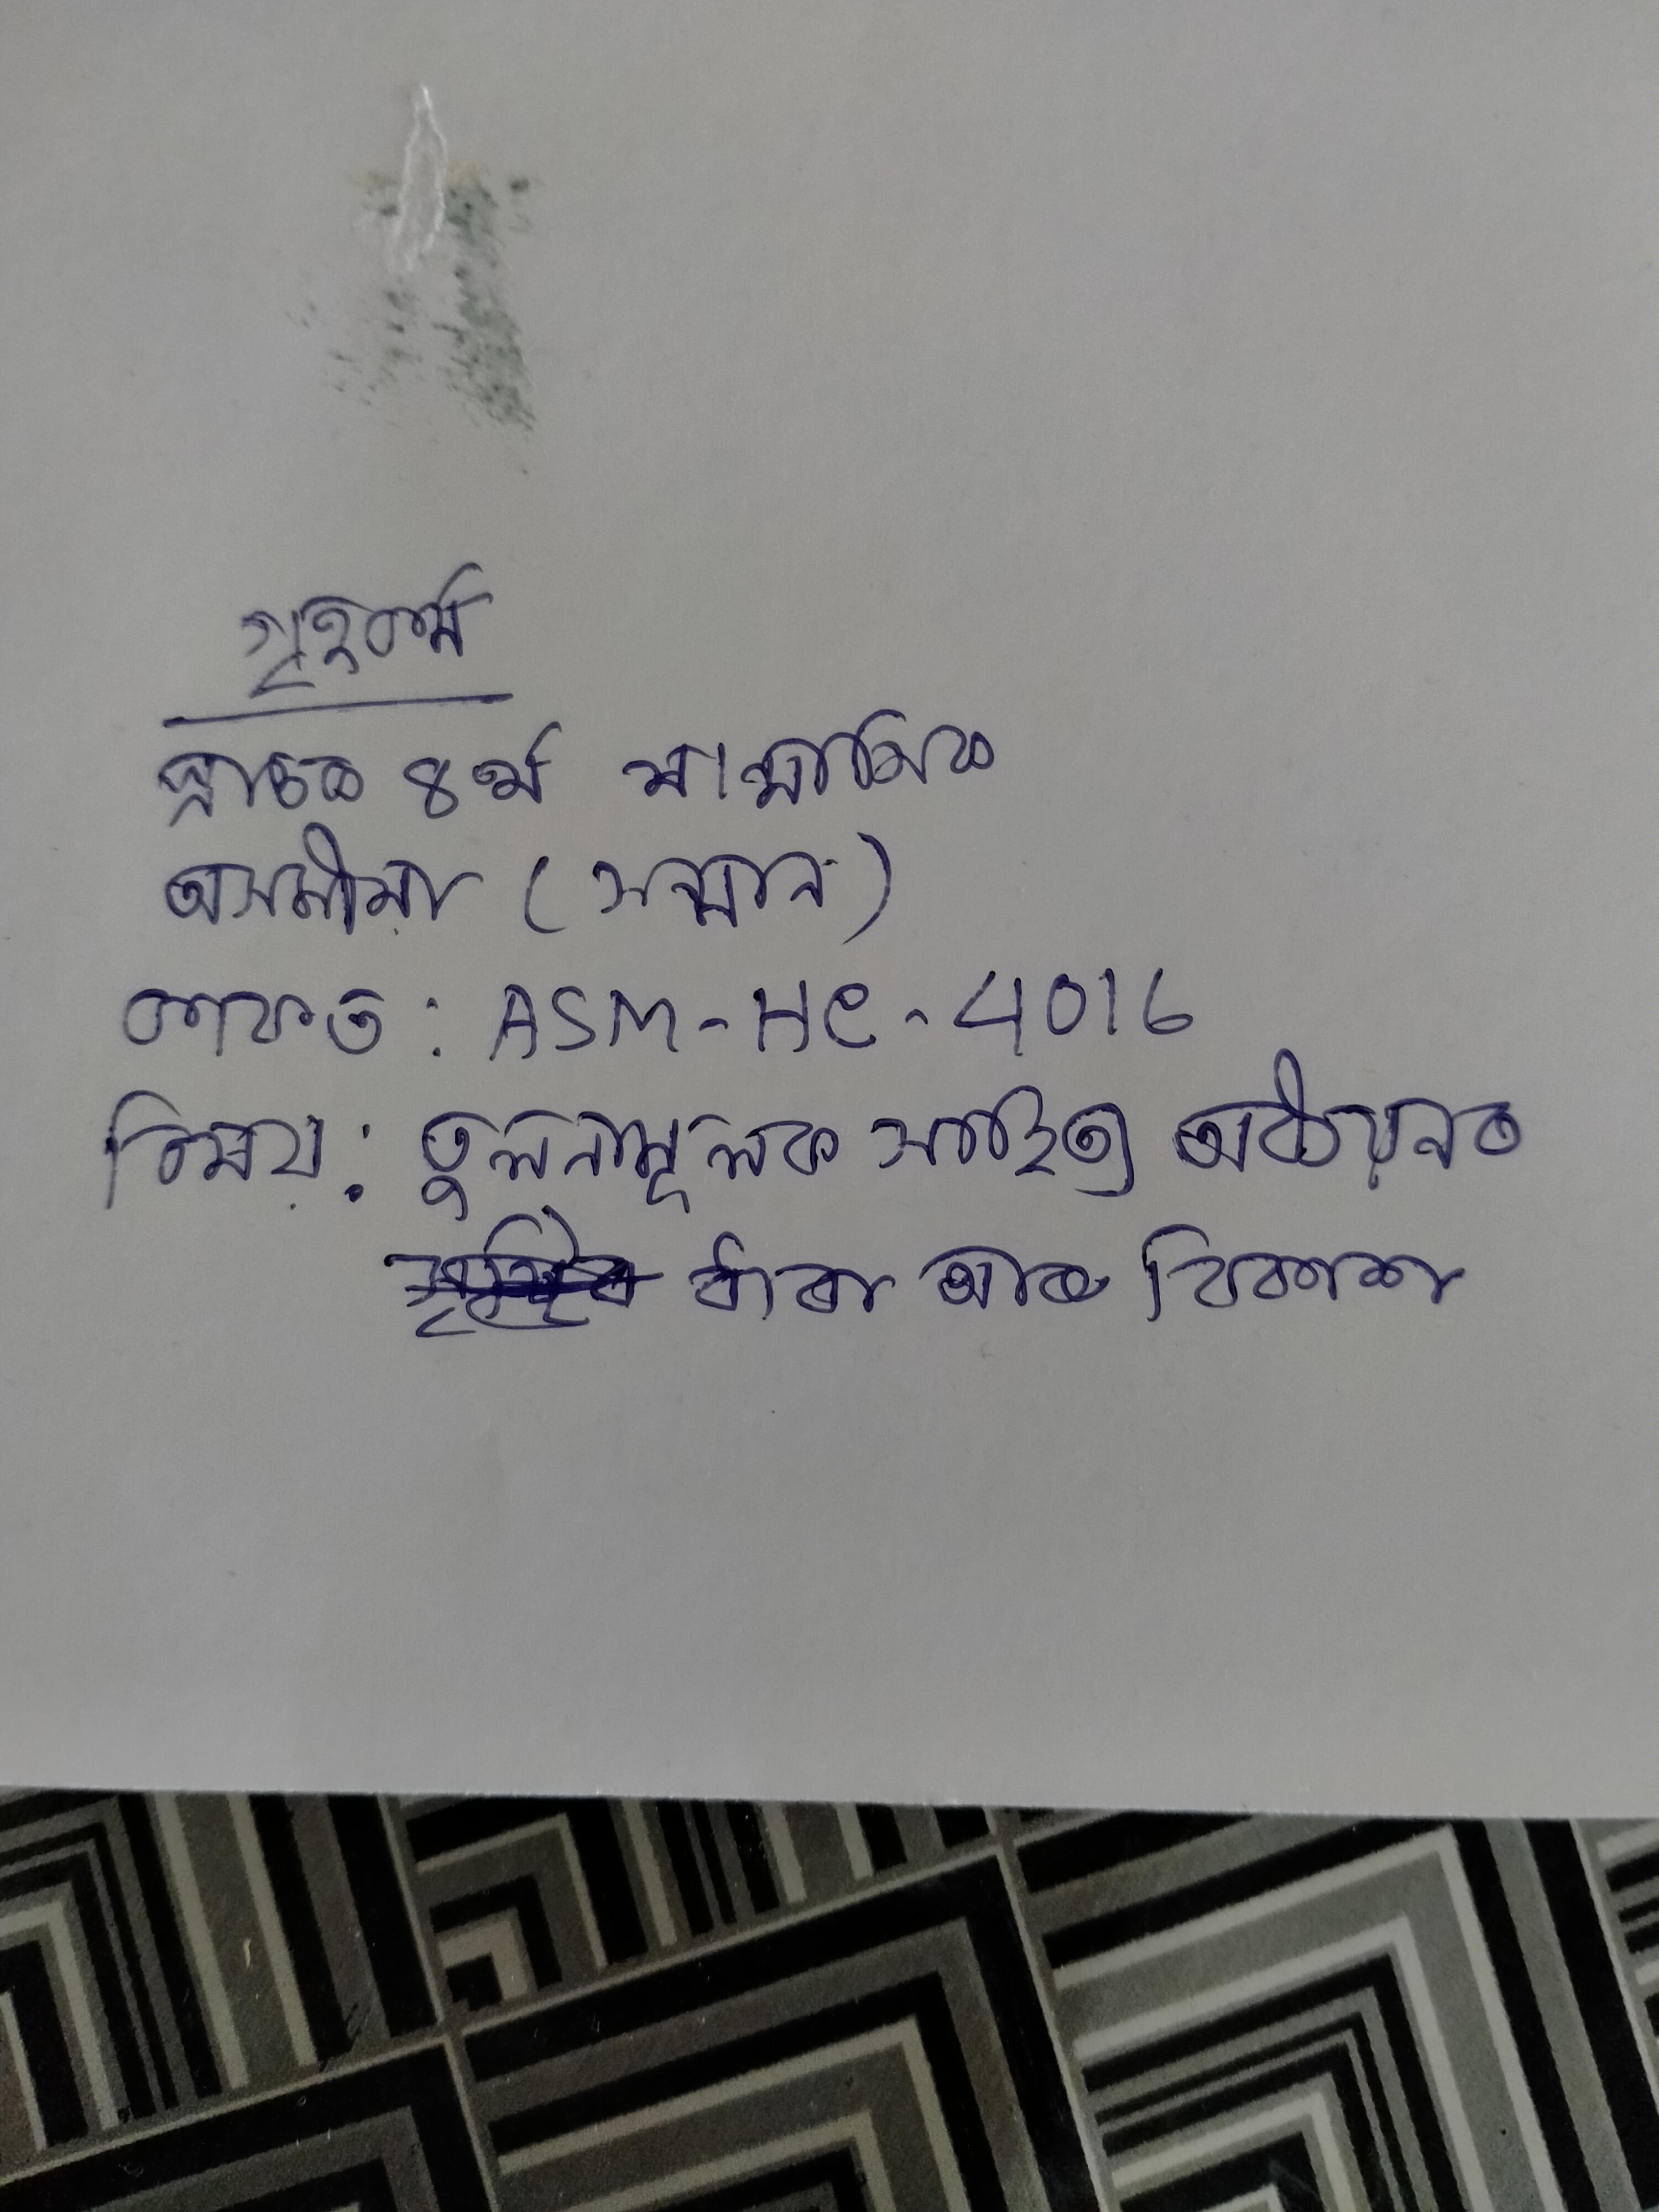 গৃহকৰ্ম
স্নাতক ৪ৰ্থ ষাণ্মাসিক
অসমীয়া (সন্মান)
কাকত : ASM-HC-4016
বিষয় : তুলনামূলক সাহিত্য অধ্যয়নৰ
ধাৰা আৰু বিকাশ